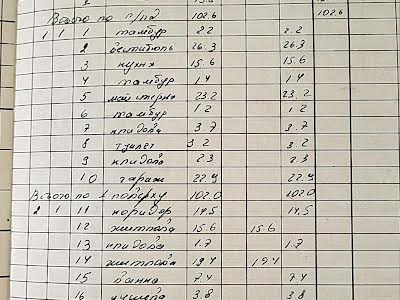 Всього по г/под 102.6 102.6
1 1 1 тамбур 2.2 2.2
2 вестибюль 26.3 26.3
3 кухня 15.6 15.6
4 тамбур 1.4 1.4
5 майстерня 23.2 23.2
6 тамбур 1.2 1.2
7 кладова 3.7 3.7
8 туалет 3.2 3.2
9 кладова 2.3 2.3
10 гараж 22.9 22.9
Всього по 1 поверху 102.0 102.0
2 1 11 коридор 14.5 14.5
12 житлова 15.6 15.6
13 кладова 1.7 1.7
14 житлова 19.4 19.4
15 ванна 7.4 7.4
16 3.8 3.8